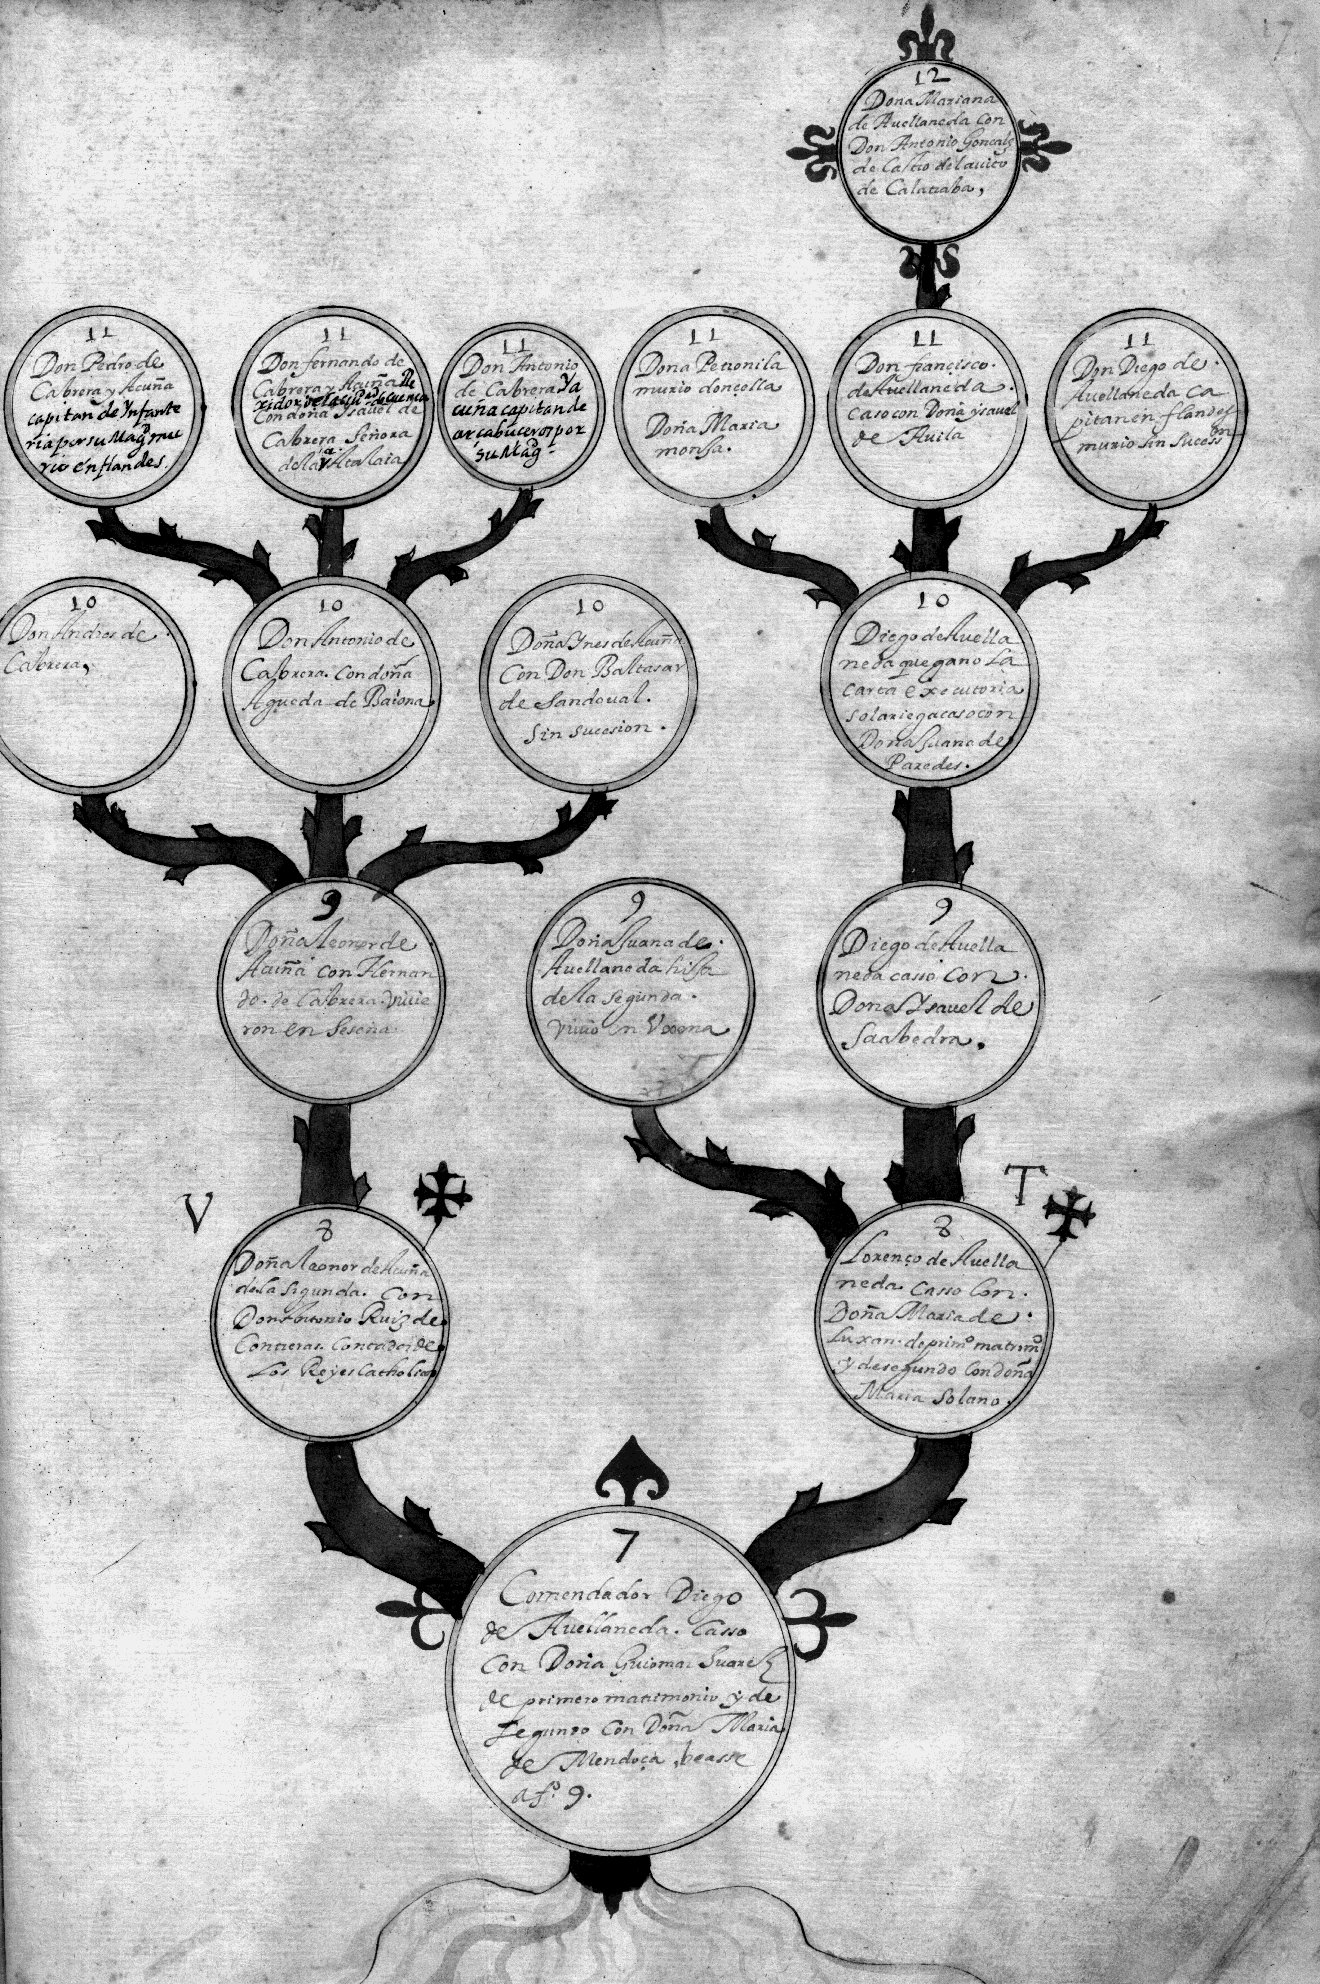 17
12
Dona Mariana
de Avellaneda Con
Don Antonio Gonçalз
de Castro del auito
de Calatraba,
11
Don Pedro de
Cabrera y Acuña
capitan de Ynfante
ria por su Magᵈ mu
rio en flandes.
11
Don fernando de
Cabrera y Acuña Re
xidor de la ciudad de cuenca
Con doña Ysauel de
Cabrera Señora
de la Atalaia
11
Don Antonio
de Cabrera Ya
cuña capitan de
arcabuceros por
su Magᵈ.
11
Dona Petronila
murio donçella
Doña Maria
monja.
11
Don françisco.
de Avellaneda.
Caso con Doña ysauel
de Auila
11
Don Diego de.
Auellaneda Ca
pitan en flandes
murio sin sucess
on
10
Don Andres de
Cabrera,
10
Don Antonio de
Cabrera. Con doña
Agueda de Baiona.
10
Doña Ynes de Acuña
Con Don Baltasar
de Sandoual.
Sin sucesion.
10
Diego de Auella
neda que gano La
Carta executoria
solariega caso con
Dona Juana de
Paredes.
9
Doña Leonor de
Acuña Con Hernan
do. de Cabrera. viuie
ron en Seseña
9
Doña Juana de.
Auellaneda hija
de la segunda.
viuio en Vxena
9
Diego de Auella
neda casso Con.
Dona Ysauel de
Saabedra.
V
T
8
Doña Leonor de Acuña
de la Sigunda. Con
Don Antonio Ruiz de
Contreras. Contador de
Los Reyes Catholicos
8
Lorenço de Auella
neda. Casso Con.
Doña Maria de.
Luxan. de primº matrimº
y de segundo Con doña
Maria Solano.
7
Comendador Diego
de Auellaneda. Casso
Con Doña Guiomar Suarez
de primero matrimonio y de
segundo Con Doña Maria
de Mendoça, beasse
a fº. 9.